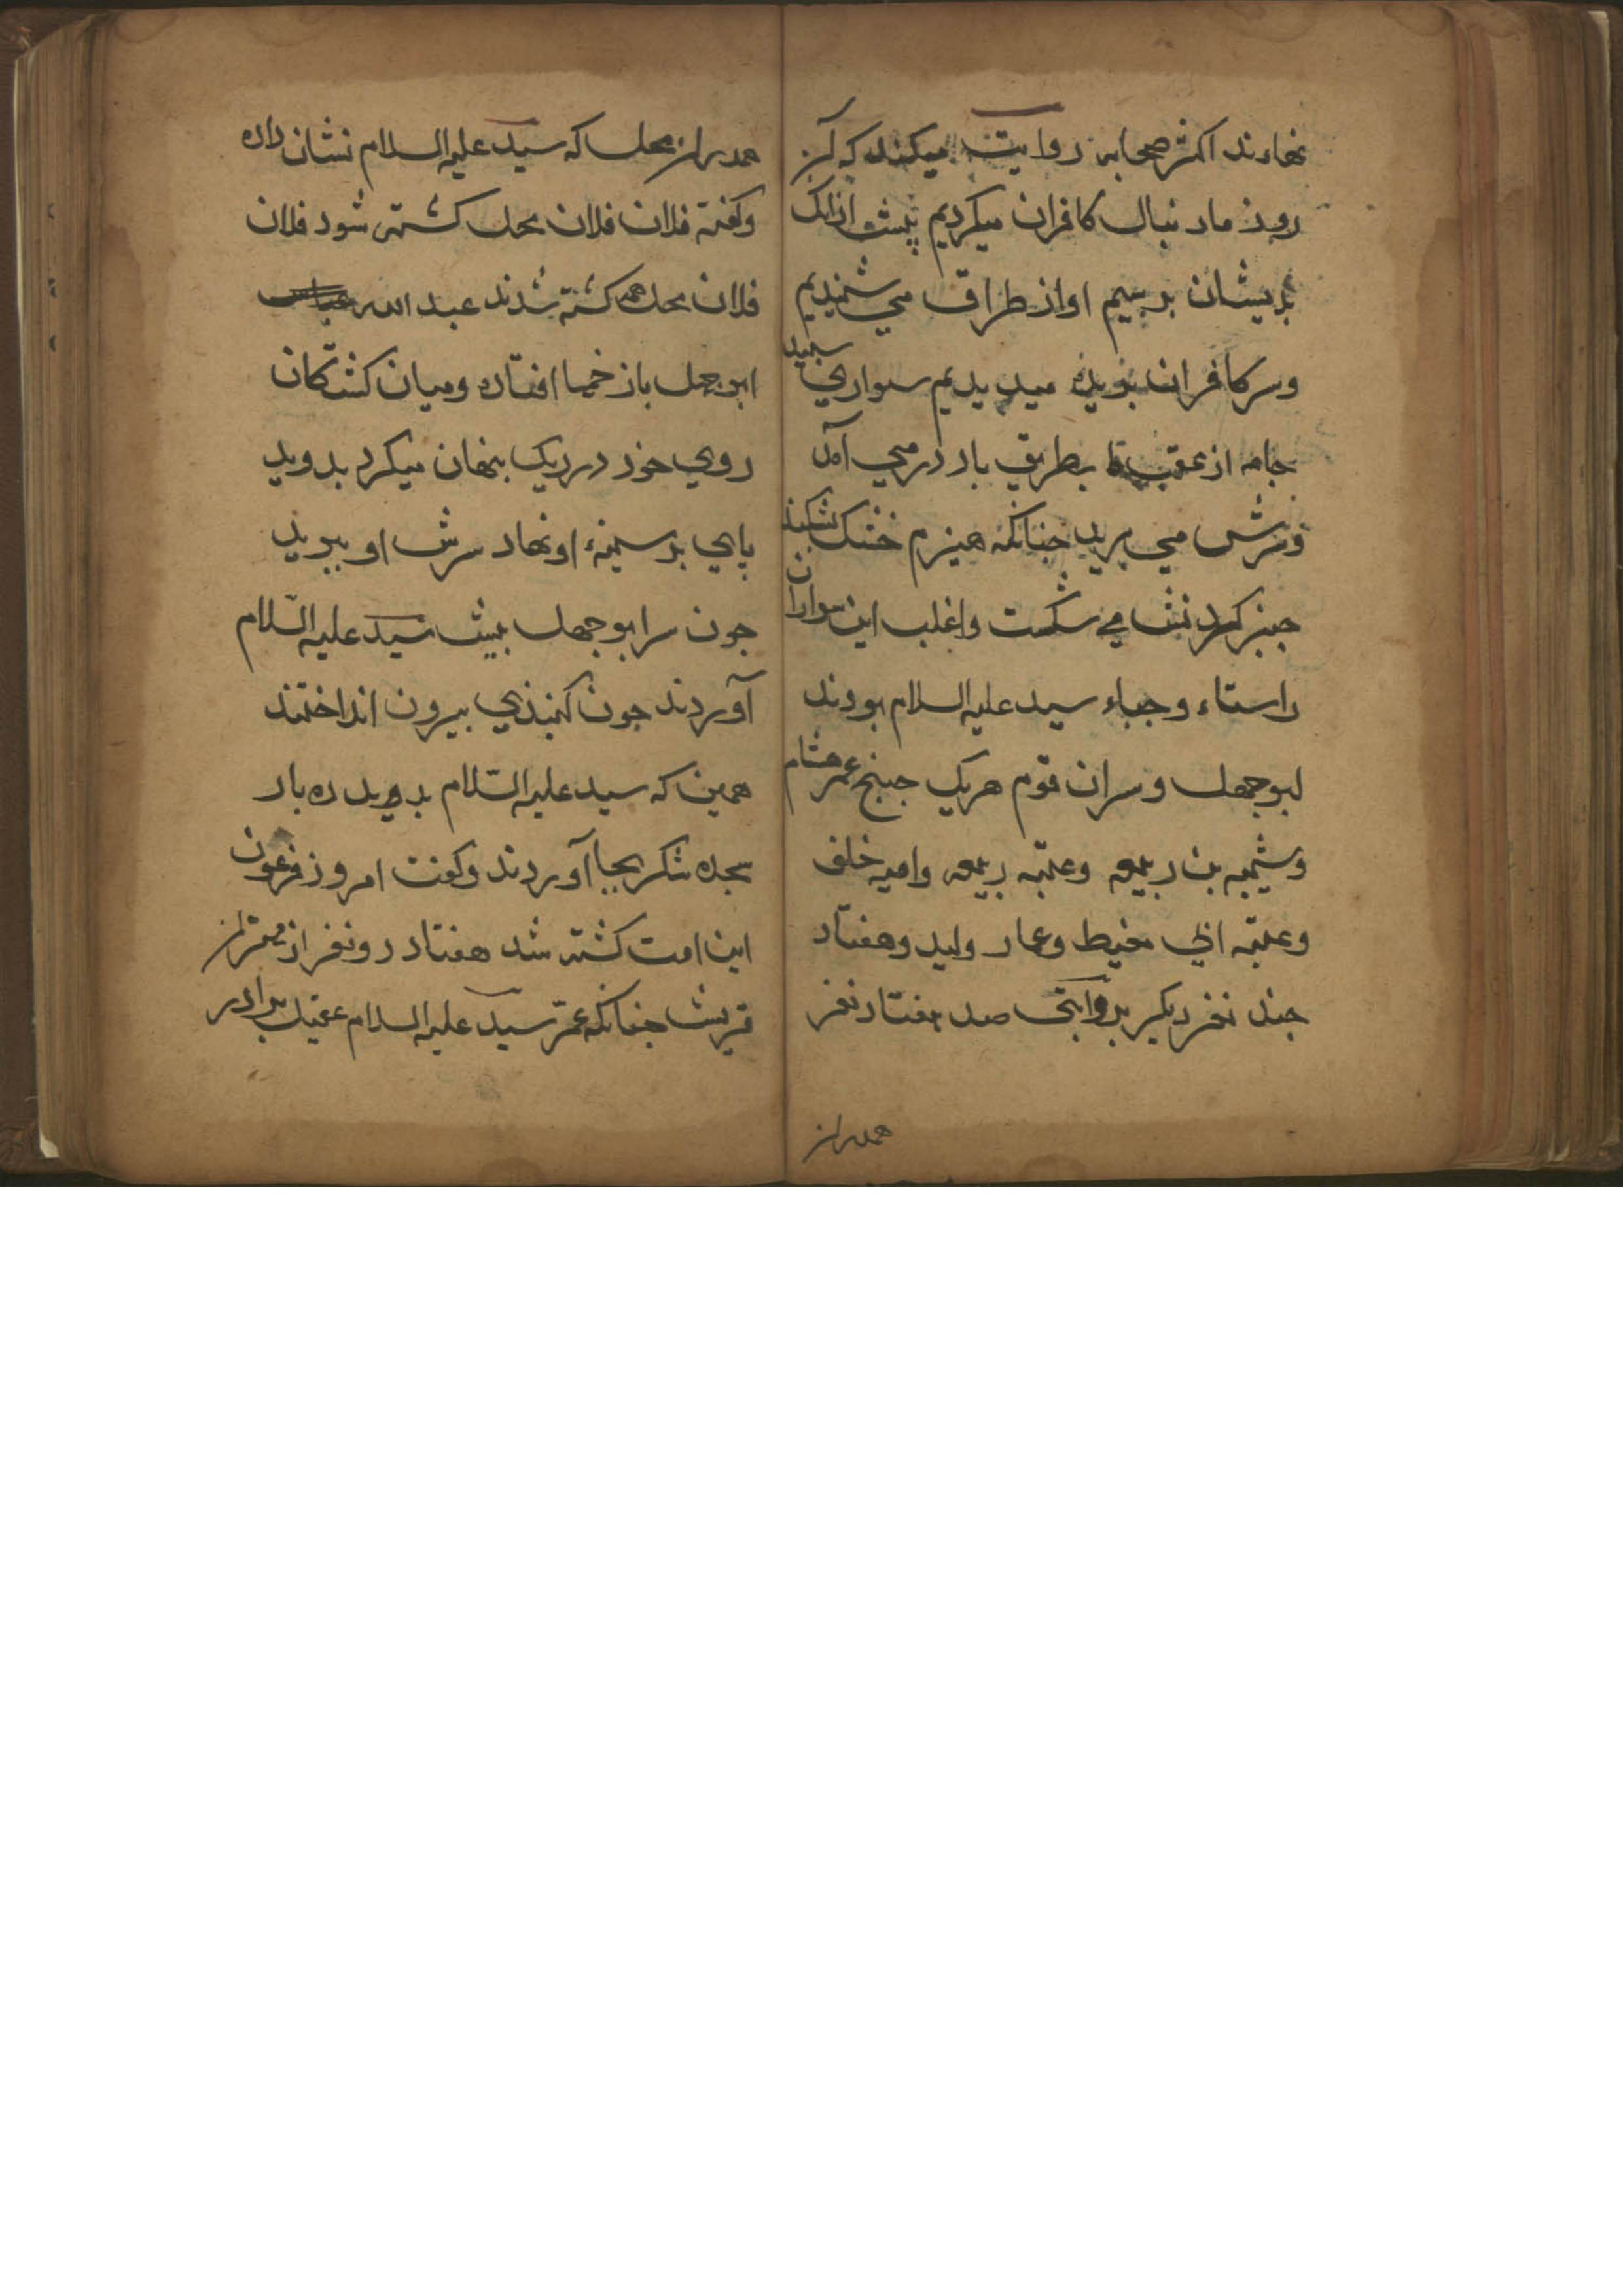 نهادند اکثر صحابه روایت میکنند که آن
روز ما دنبال کافران میکردیم پیش ازانک
بدیشان برسیم اواز طراق می شنیدیم
وسر کافران بریده میدیدیم سواری سپید
جامه از عقب ما بطریق باد درمی آمد
وسرش می برید جنانکه هیزم خشک شکند
می شکست واغلب این سواران
راستاء وجباء سید علیه السلام بودند
ابوجهل وسران قوم هریک جبنج عمر هشام
وشیبه بن ربیعه وعتبه ربیعه وامیه خلف
وعقبه ابی معیط وعمار ولید وهفتاد
جند نفر دیکر بروایتی صد هفتاد نفر
همدران
همدران محل که سید علیه السلام نشان داده
وکفته فلان فلان محل کشته شود فلان
فلان محل همه کشته شدند عبد الله عباس
ابوجهل باز خمها افتاده ومیان کشتکان
روی خود در ریک پنهان میکرد بدوید
پای بر سینهء او نهاد سرش او ببرید
جون سر ابوجهل پیش سید علیه السّلام
آوردند جون کنبذی بیرون انداختند
همین که سید علیه السّلام بدوید ده بار
سجده شکر بجا آوردند وکفت امروز فرعون
این امت کشته شد هفتاد دو نفر از مهتران
قریش جنانکه عمّ سید علیه السلام عقیل برادر